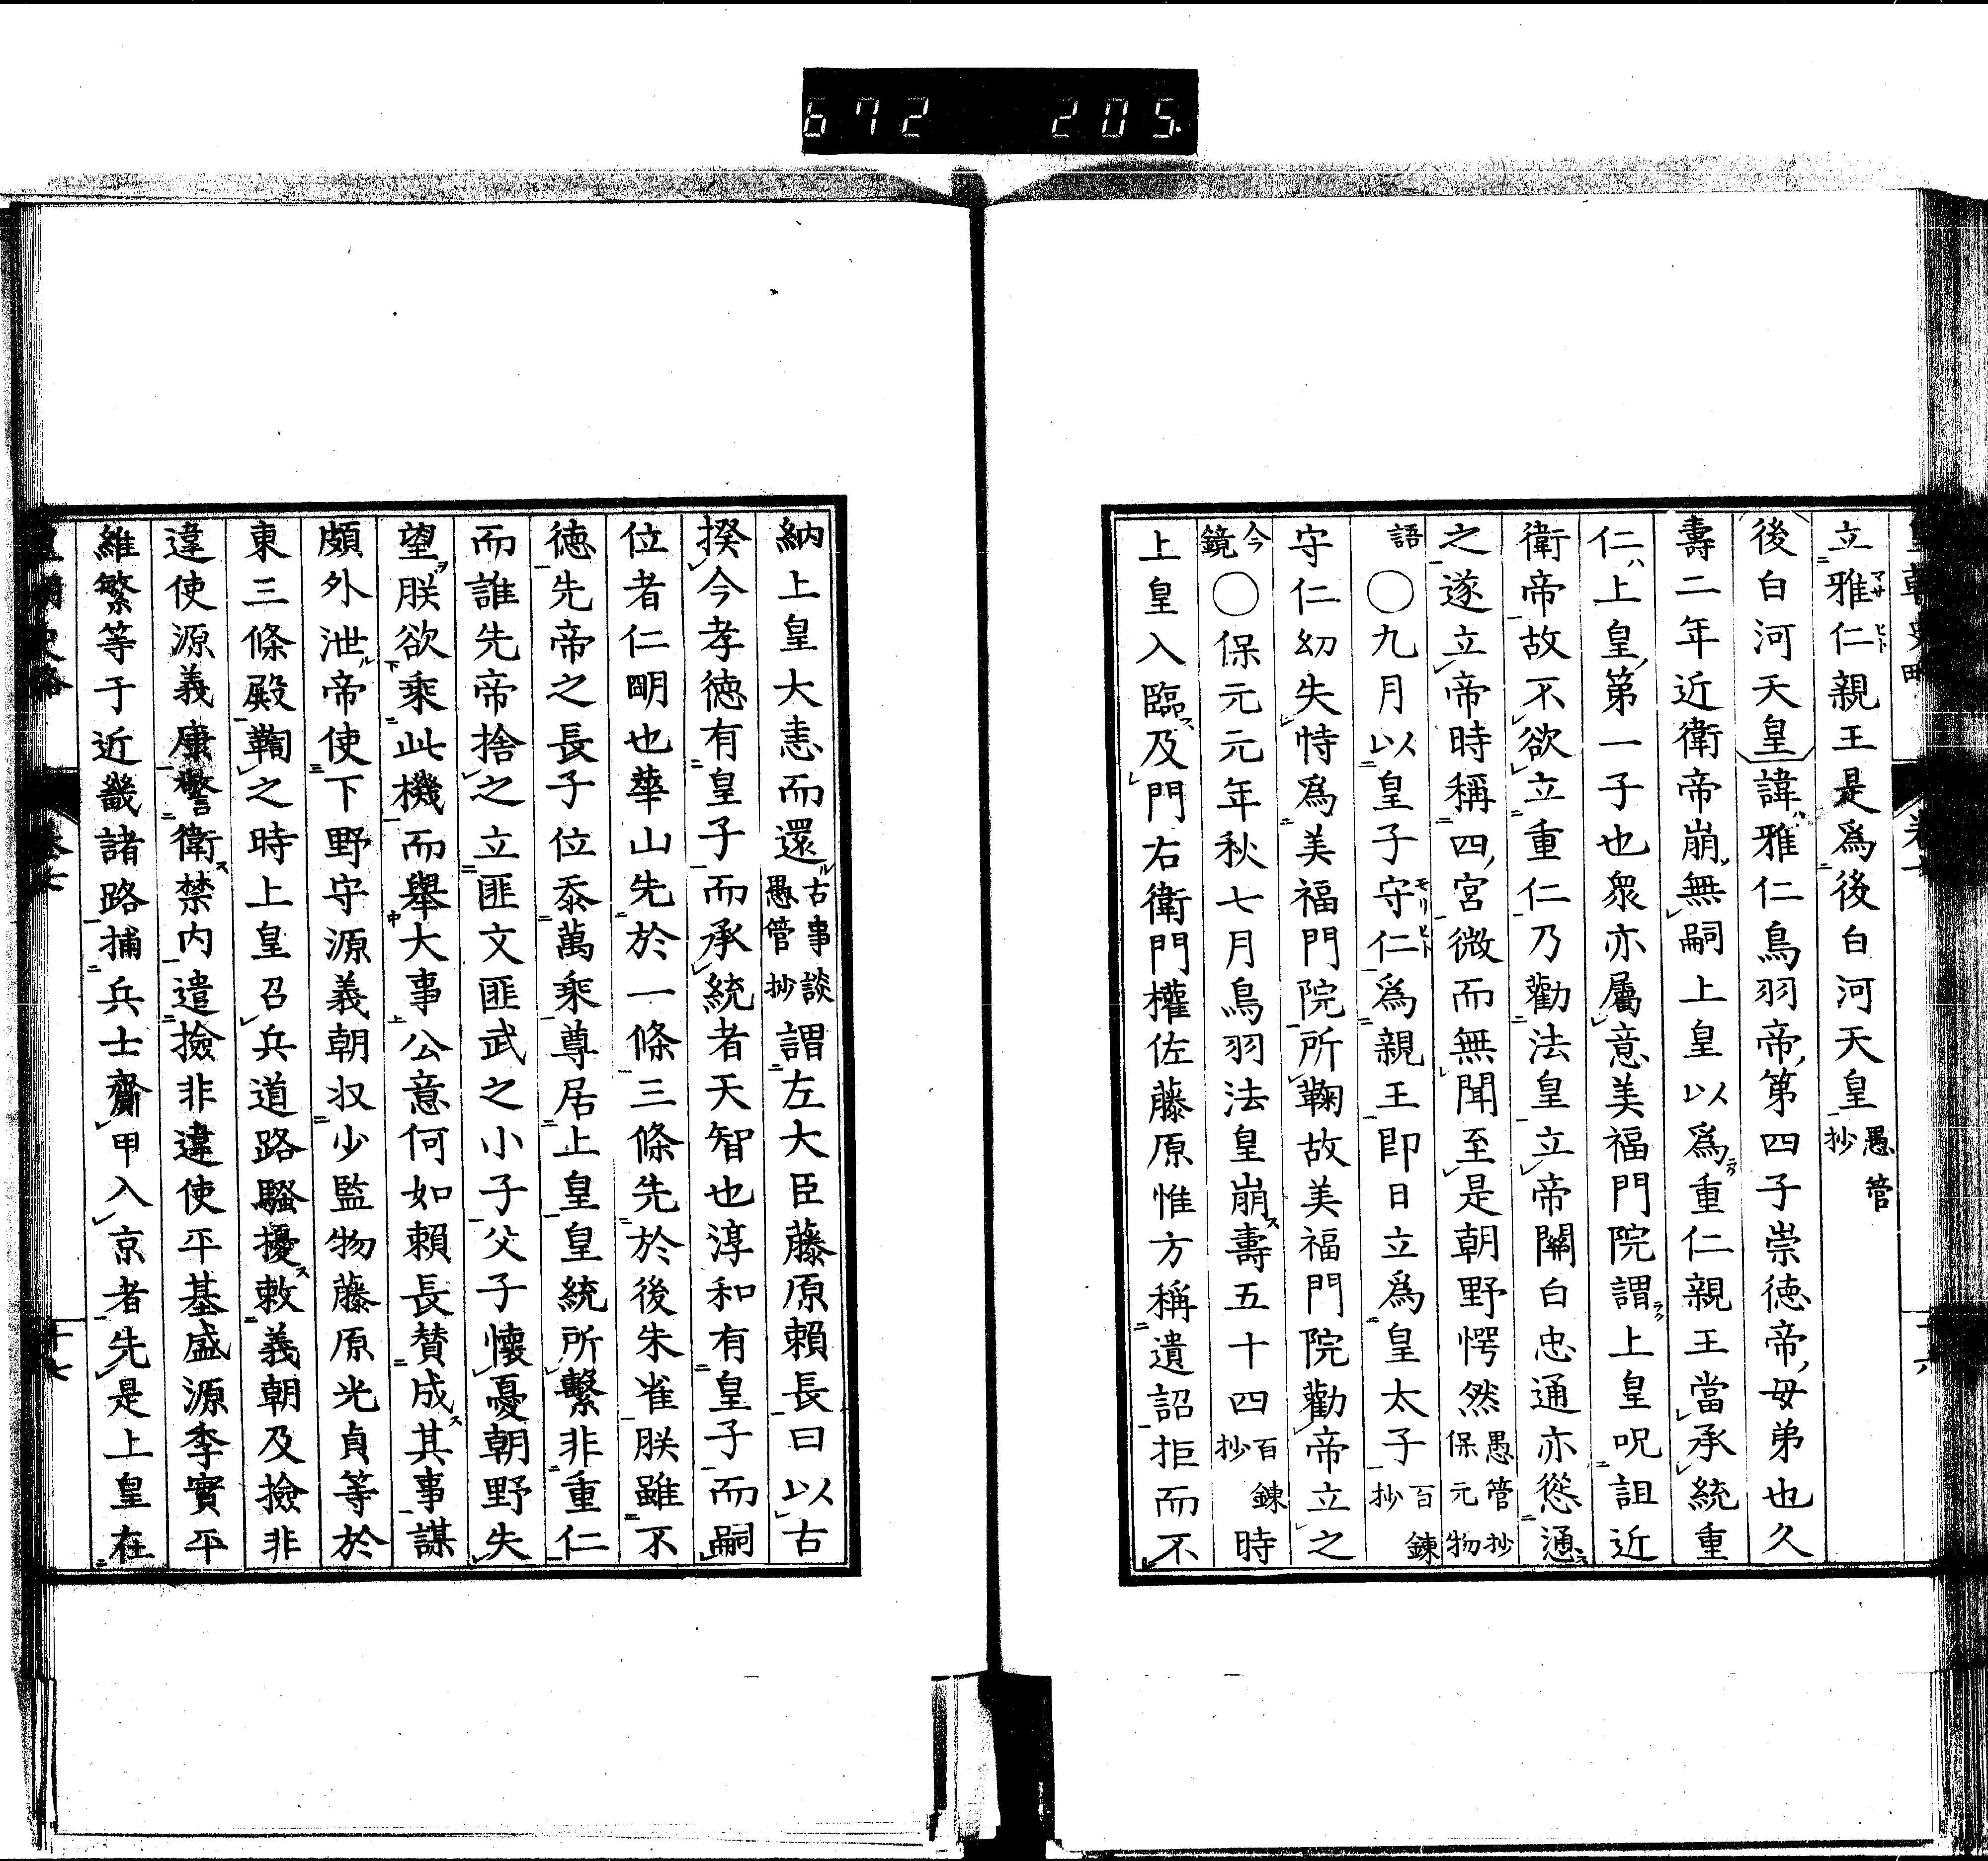 672 205.
立雅仁親王是爲後白河天皇愚管抄
後白河天皇諱雅仁鳥羽帝第四子崇徳帝母弟也久
壽二年近衛帝崩無嗣上皇以爲重仁親王當承統重
仁上皇第一子也衆亦屬意美福門院謂上皇呪詛近
衛帝故不欲立重仁乃勸法皇立帝關白忠通亦慫慂
之遂立帝時稱四宮微而無聞至是朝野愕然愚管抄保元物
語〇九月以皇子守仁爲親王即日立爲皇太子百鍊抄
守仁幼失恃爲美福門院所鞠故美福門院勸帝立之
今鏡〇保元元年秋七月鳥羽法皇崩壽五十四百鍊抄時
上皇入臨及門右衛門權佐藤原惟方稱遺詔拒而不
納上皇大恚而還古事談愚管抄謂左大臣藤原賴長曰以古
揆今孝徳有皇子而承統者天智也淳和有皇子而嗣
位者仁明也華山先於一條三條先於後朱雀朕雖不
徳先帝之長子位忝萬乘尊居上皇皇統所繫非重仁
而誰先帝捨之立匪文匪武之小子父子懷憂朝野失
望朕欲乘此機而舉大事公意何如賴長賛成其事謀
頗外泄帝使下野守源義朝收少監物藤原光貞等於
東三條殿鞫之時上皇召兵道路騷擾敕義朝及撿非
違使源義康警衛禁内遣撿非違使平基盛源季實平
維繁等于近畿諸路捕兵士齎甲入京者先是上皇在